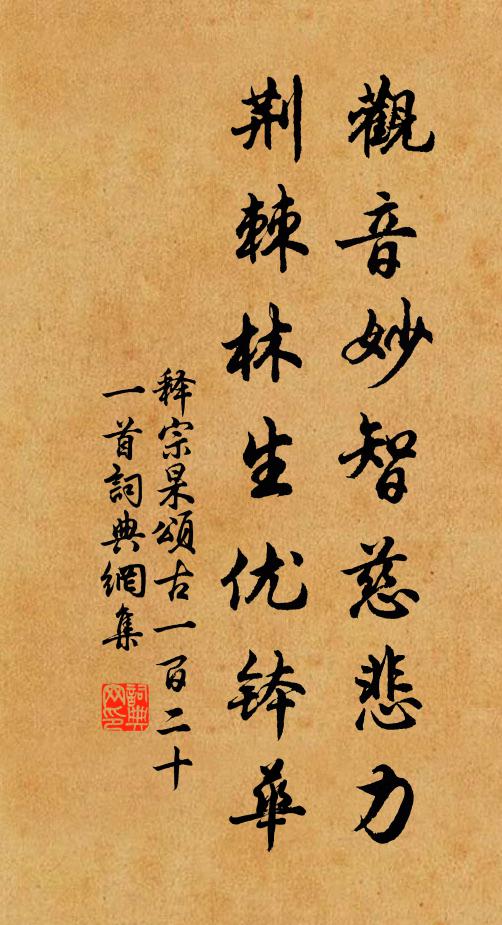 觀音妙智慈悲力
荆棘林生优钵華
释宗杲頌古一百二十
一首詞典網集
詞典
网印